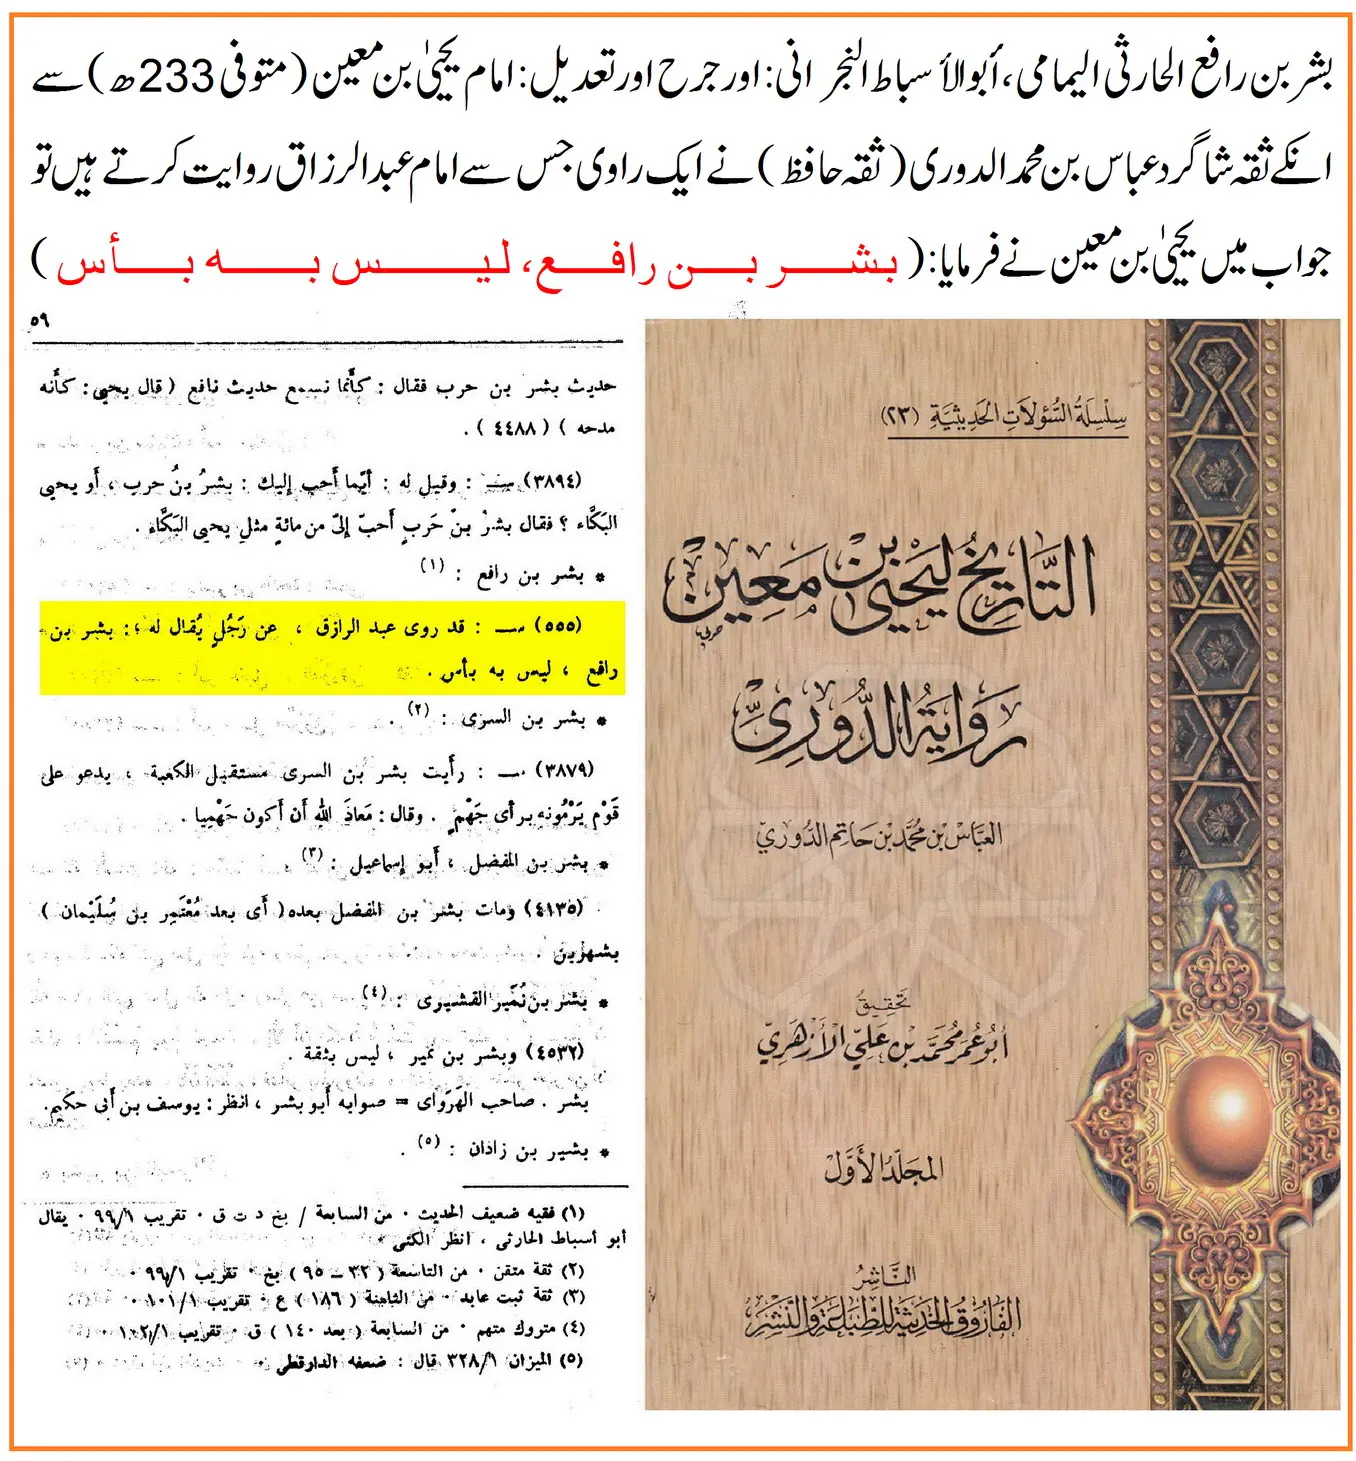 بشر بن رافع الحارثی الیمامی، أبو الأسباط النجرانی: اور جرح اور تعدیل: امام یحییٰ بن معین (متوفی 233ھ) سے
انکے ثقہ شاگرد عباس بن محمد الدوری (ثقہ حافظ) نے ایک راوی جس سے امام عبد الرزاق روایت کرتے ہیں تو
جواب میں یحییٰ بن معین نے فرمایا: (بشر بن رافع، ليس به بأس)
٥٩
حديث بشر بن حرب فقال : كأنما نسمع حديث نافع ( قال يحيى : كأنه
مدحه ) ( ٤٤٨٨ ) .
(٣٨٩٤) ســ : وقيل له : أيّما أحب إليك : بشرُ بنُ حرب ، أو يحيى
البكَّاء ؟ فقال بشرُ بنْ حَربٍ أحبّ إلىّ من مائةٍ مثلِ يحيى البَكَّاء .
* بشر بن رافع : (١)
(٥٥٥) ســ : قد روى عبد الرازق ، عن رَجُلٍ يُقال له : بشر بن
رافع ، ليس به بأس .
* بشر بن السرى : (٢) .
(٣٨٧٩) ســ : رأيت بشر بن السرى مستقبل الكعبة ، يدعو على
قَوْم يَرْمُونه برأى جَهْمٍ . وقال : مَعاذَ اللهِ أن أكون جَهْمِيا .
* بشر بن المفضل ، أبو إسماعيل : (٣) .
(٤١٣٥) ومات بشر بن المفضل بعده ( أى بعد مُعْتَمِر بن سُلَيْمان )
بشهرين .
* بشر بن نُمَير القشيرى : (٤)
(٤٥٣٢) وبشر بن نمير ، ليس بثقة .
بشر . صاحب الهَرَوَاى = صوابه أبو بشر ، انظر : يوسف بن أبى حكيم.
* بشير بن زاذان : (٥) .
(١) فقيه ضعيف الحديث ٠ من السابعة / بخ د ت ق ٠ تقريب ٩٩/١ ٠ يقال
أبو أسباط الحارثى ، انظر الكنى ٠
(٢) ثقة متقن ٠ من التاسعة ( ٣٢ – ٩٥ ) بخ ٠ تقريب ٩٩/١ ٠
(٣) ثقة ثبت عابد ٠ من الثامنة ( ١٨٦ ) ع ٠ تقريب ١٠١/١ ٠
(٤) متروك متهم ٠ من السابعة ( بعد ١٤٠ ) ق ٠ تقريب ١٠٢/١ ٠
(٥) الميزان ٣٢٨/١ قال : ضعفه الدارقطى
سِلْسِلَةُ السُّؤلَاتِ الحَدِيثِيَّةِ (٢٣)
التَّارِيخُ لِيَحْيَى بْنِ مَعِينٍ
رِوَايَةُ الدُّورِيِّ
العَبَّاسِ بْنِ مُحَمَّدِ بْنِ حَاتِمِ الدُّورِيِّ
تَحْقِيقُ
أَبُو عُمَرَ مُحَمَّدُ بْنُ عَلِيٍّ الأَزْهَرِيُّ
المجَلَّدُ الأَوَّلُ
النَّاشِرُ
الفَارُوقُ الحَدِيثَةُ لِلطِّبَاعَةِ وَالنَّشْرِ